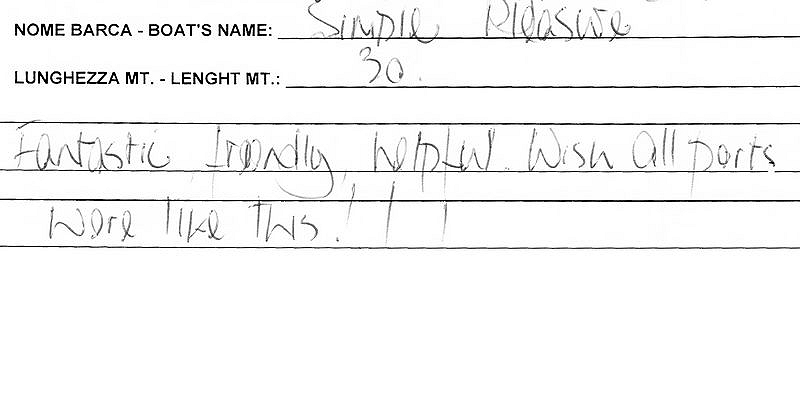 NOME BARCA - BOAT'S NAME: Simple Pleasure
LUNGHEZZA MT. - LENGHT MT.: 30.
Fantastic, friendly, helpful. Wish all ports
were like this!!!